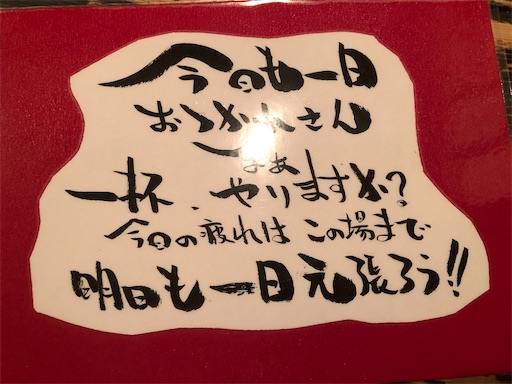 今日も一日
おつかれさん
まぁ
一杯、やりますか?
今日の疲れは この場まで
明日も一日元張ろう!!